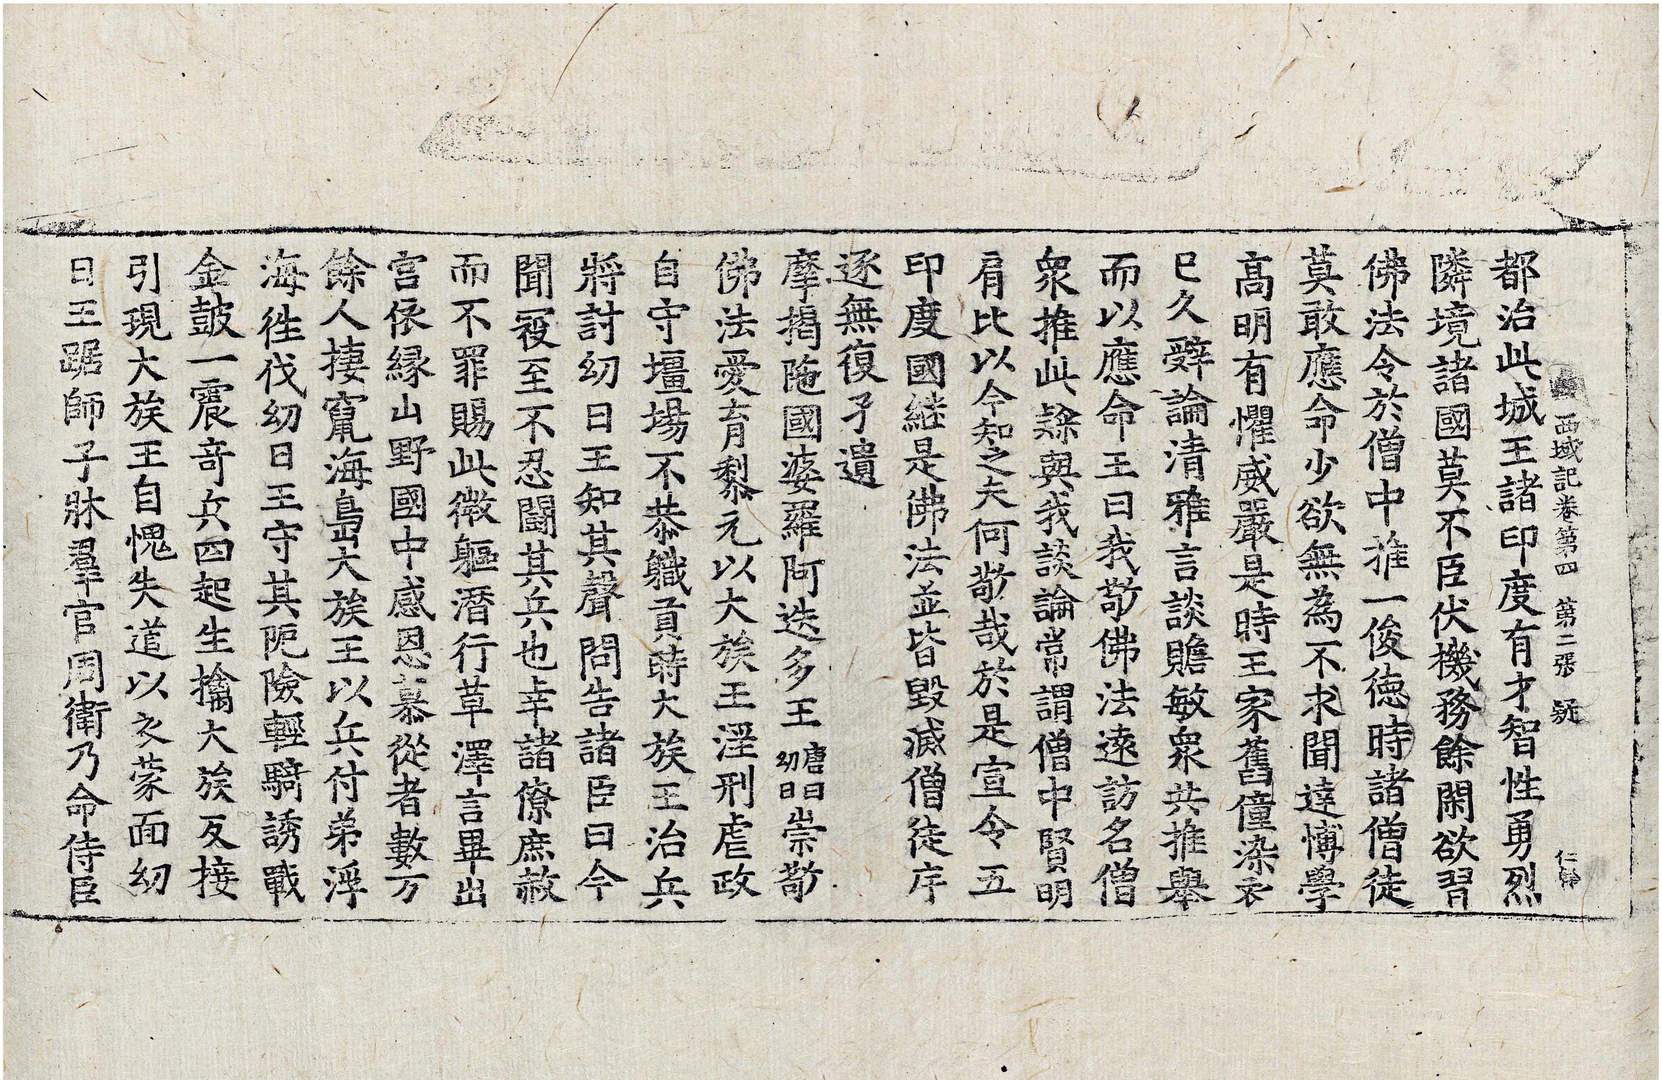 西域記卷第四 第二張 疑
都治此城王諸印度有才智性勇烈
隣境諸國莫不臣伏機務餘閑欲習
佛法令於僧中推一俊德時諸僧徒
莫敢應命少欲無為不求聞達博學
高明有懼威嚴是時王家舊僮染衣
已久辭論清雅言談贍敏衆共推舉
而以應命王曰我敬佛法遠訪名僧
衆推此隸與我談論常謂僧中賢明
肩比以今知之夫何敬哉於是宣令五
印度國継是佛法並皆毀滅僧徒斥
逐無復孑遺
摩揭陁國婆羅阿迭多王唐言幼日崇敬
佛法愛育黎元以大族王淫刑虐政
自守壃場不恭軄貢時大族王治兵
將討幼日王知其聲問告諸臣曰今
聞寇至不忍鬪其兵也幸諸僚庶赦
而不罪賜此微軀潛行草澤言畢出
宮依緣山野國中感恩慕從者數万
餘人棲竄海島大族王以兵付弟浮
海徃伐幼日王守其阨險輕騎誘戰
金鼓一震竒兵四起生擒大族反接
引現大族王自愧失道以衣蒙面幼
日王踞師子牀羣官周衛乃命侍臣